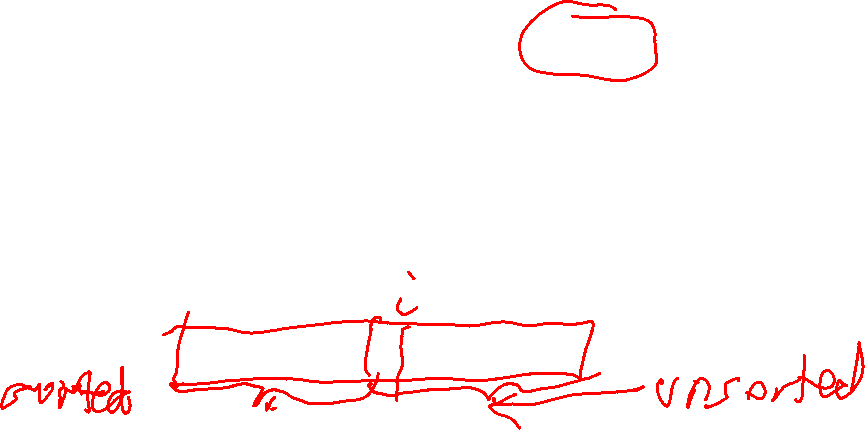 i
sorted unsorted